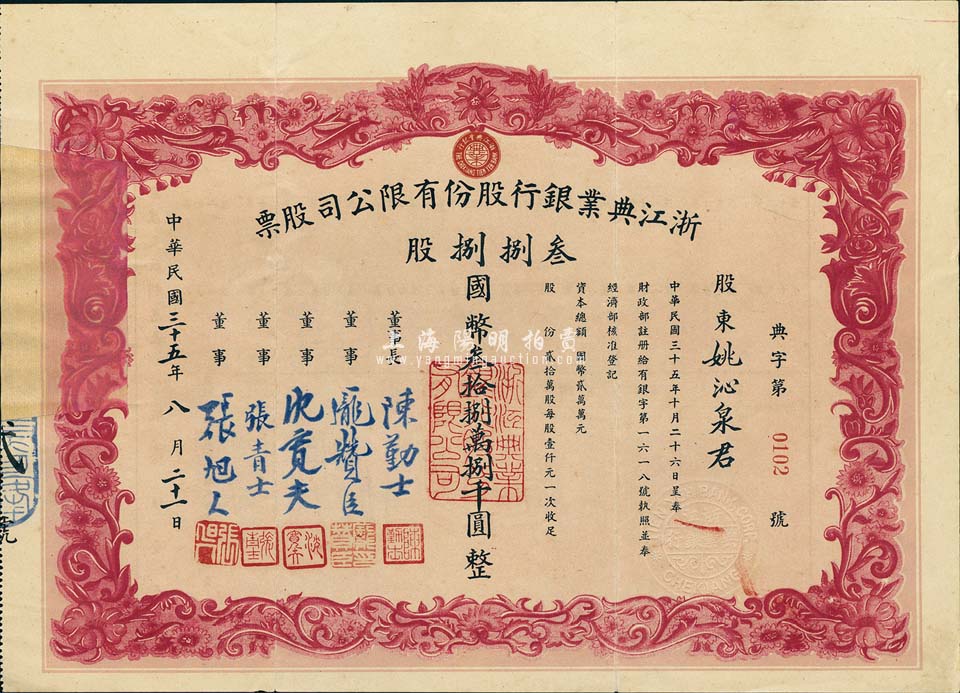 浙江典業銀行股份有限公司股票
叁捌捌股
典字第 0102 號
股東姚沁泉君
中華民國三十五年十月二十六日呈奉
財政部註册給有銀字第一六一八號執照並奉
經濟部核准登記
資本總額國幣貳萬萬元
股份貳拾萬股每股壹仟元一次收足
國幣叁拾捌萬捌千圓整
浙江典業有限公司
董事長 陳勤士
董事 龐贊臣
董事 沈貢夫
董事 張青士
董事 張旭人
中華民國三十五年八月二十一日
上海陽明拍賣
www.yangmingauction.com
號